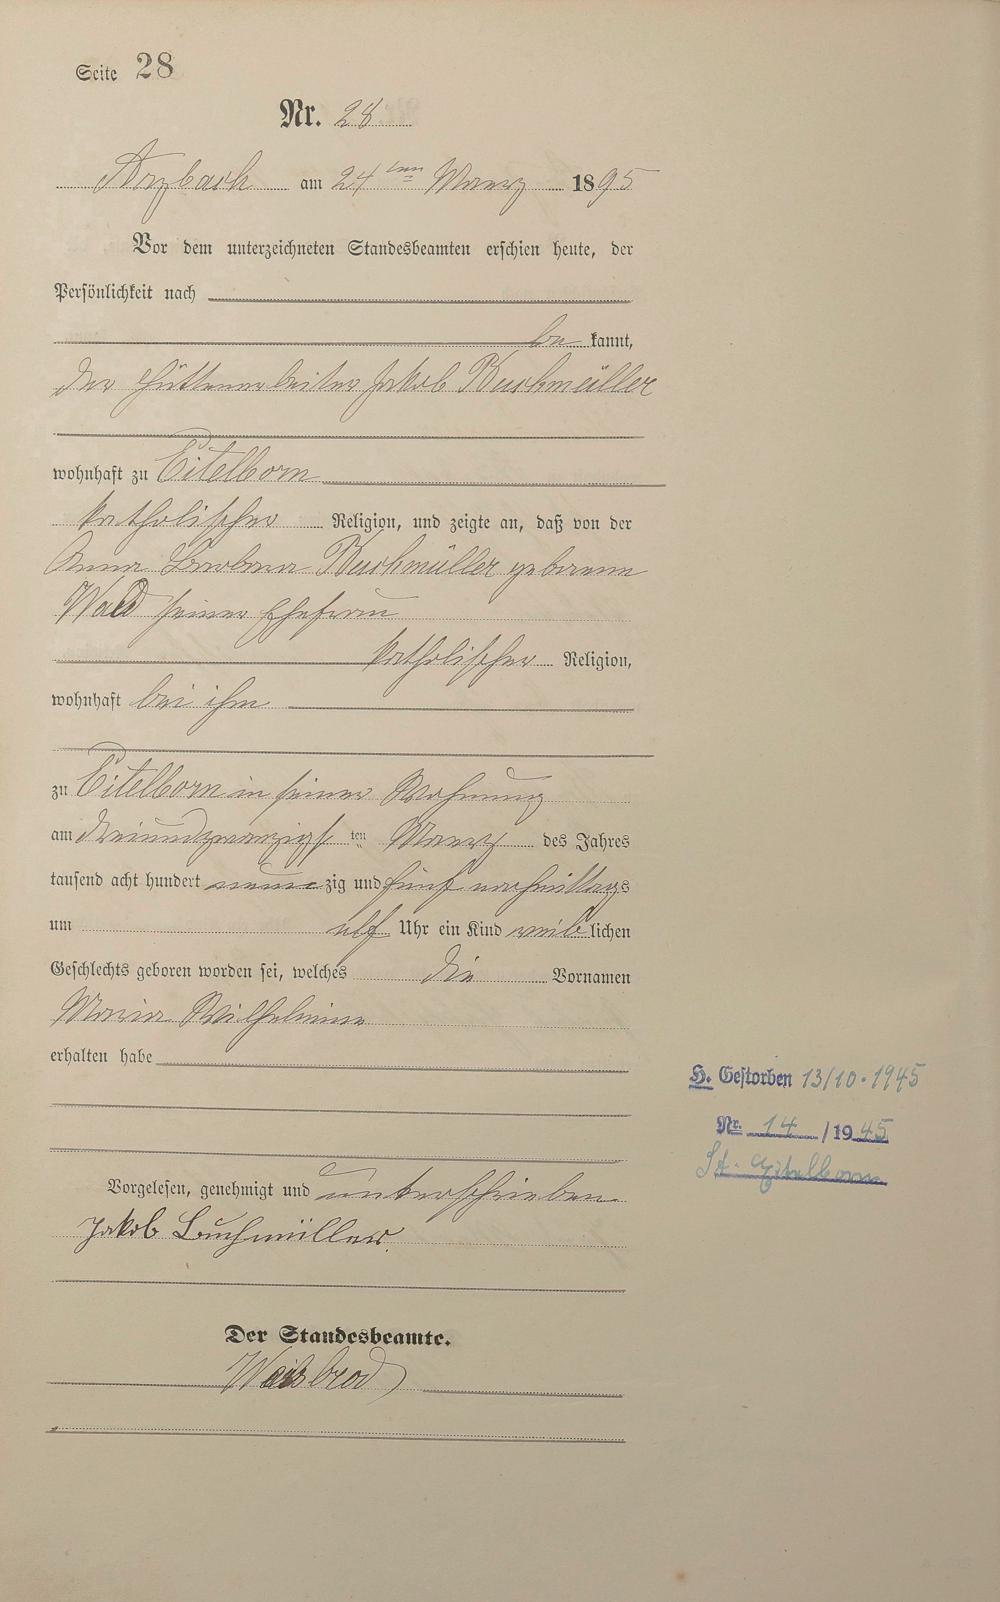 Seite 28
Nr. 28
Arzbach am 24ten Maerz 1895
Vor dem unterzeichneten Standesbeamten erschien heute, der
Persönlichkeit nach
be kannt,
der Hüttenarbeiter Jakob Buchmüller
wohnhaft zu Eitelborn
katholischer Religion, und zeigte an, daß von der
Anna Barbara Buchmüller geborene
Wald seiner Ehefrau
katholischer Religion,
wohnhaft bei ihm
zu Eitelborn in seiner Wohnung
am dreiundzwanzigsten Maerz des Jahres
tausend acht hundert neunzig und fünf nachmittags
um elf Uhr ein Kind weiblichen
Geschlechts geboren worden sei, welches die Vornamen
Maria Wilhelmine
erhalten habe
H. Gestorben 13/10.1945
Nr. 14 /1945
St. Eitelborn
Vorgelesen, genehmigt und unterschrieben
Jakob Buchmüller.
Der Standesbeamte.
Weisbrod